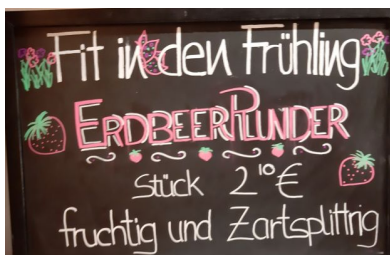 Fit in den Frühling
ERDBEERPLUNDER
Stück 2¹⁰ €
fruchtig und Zartsplittrig